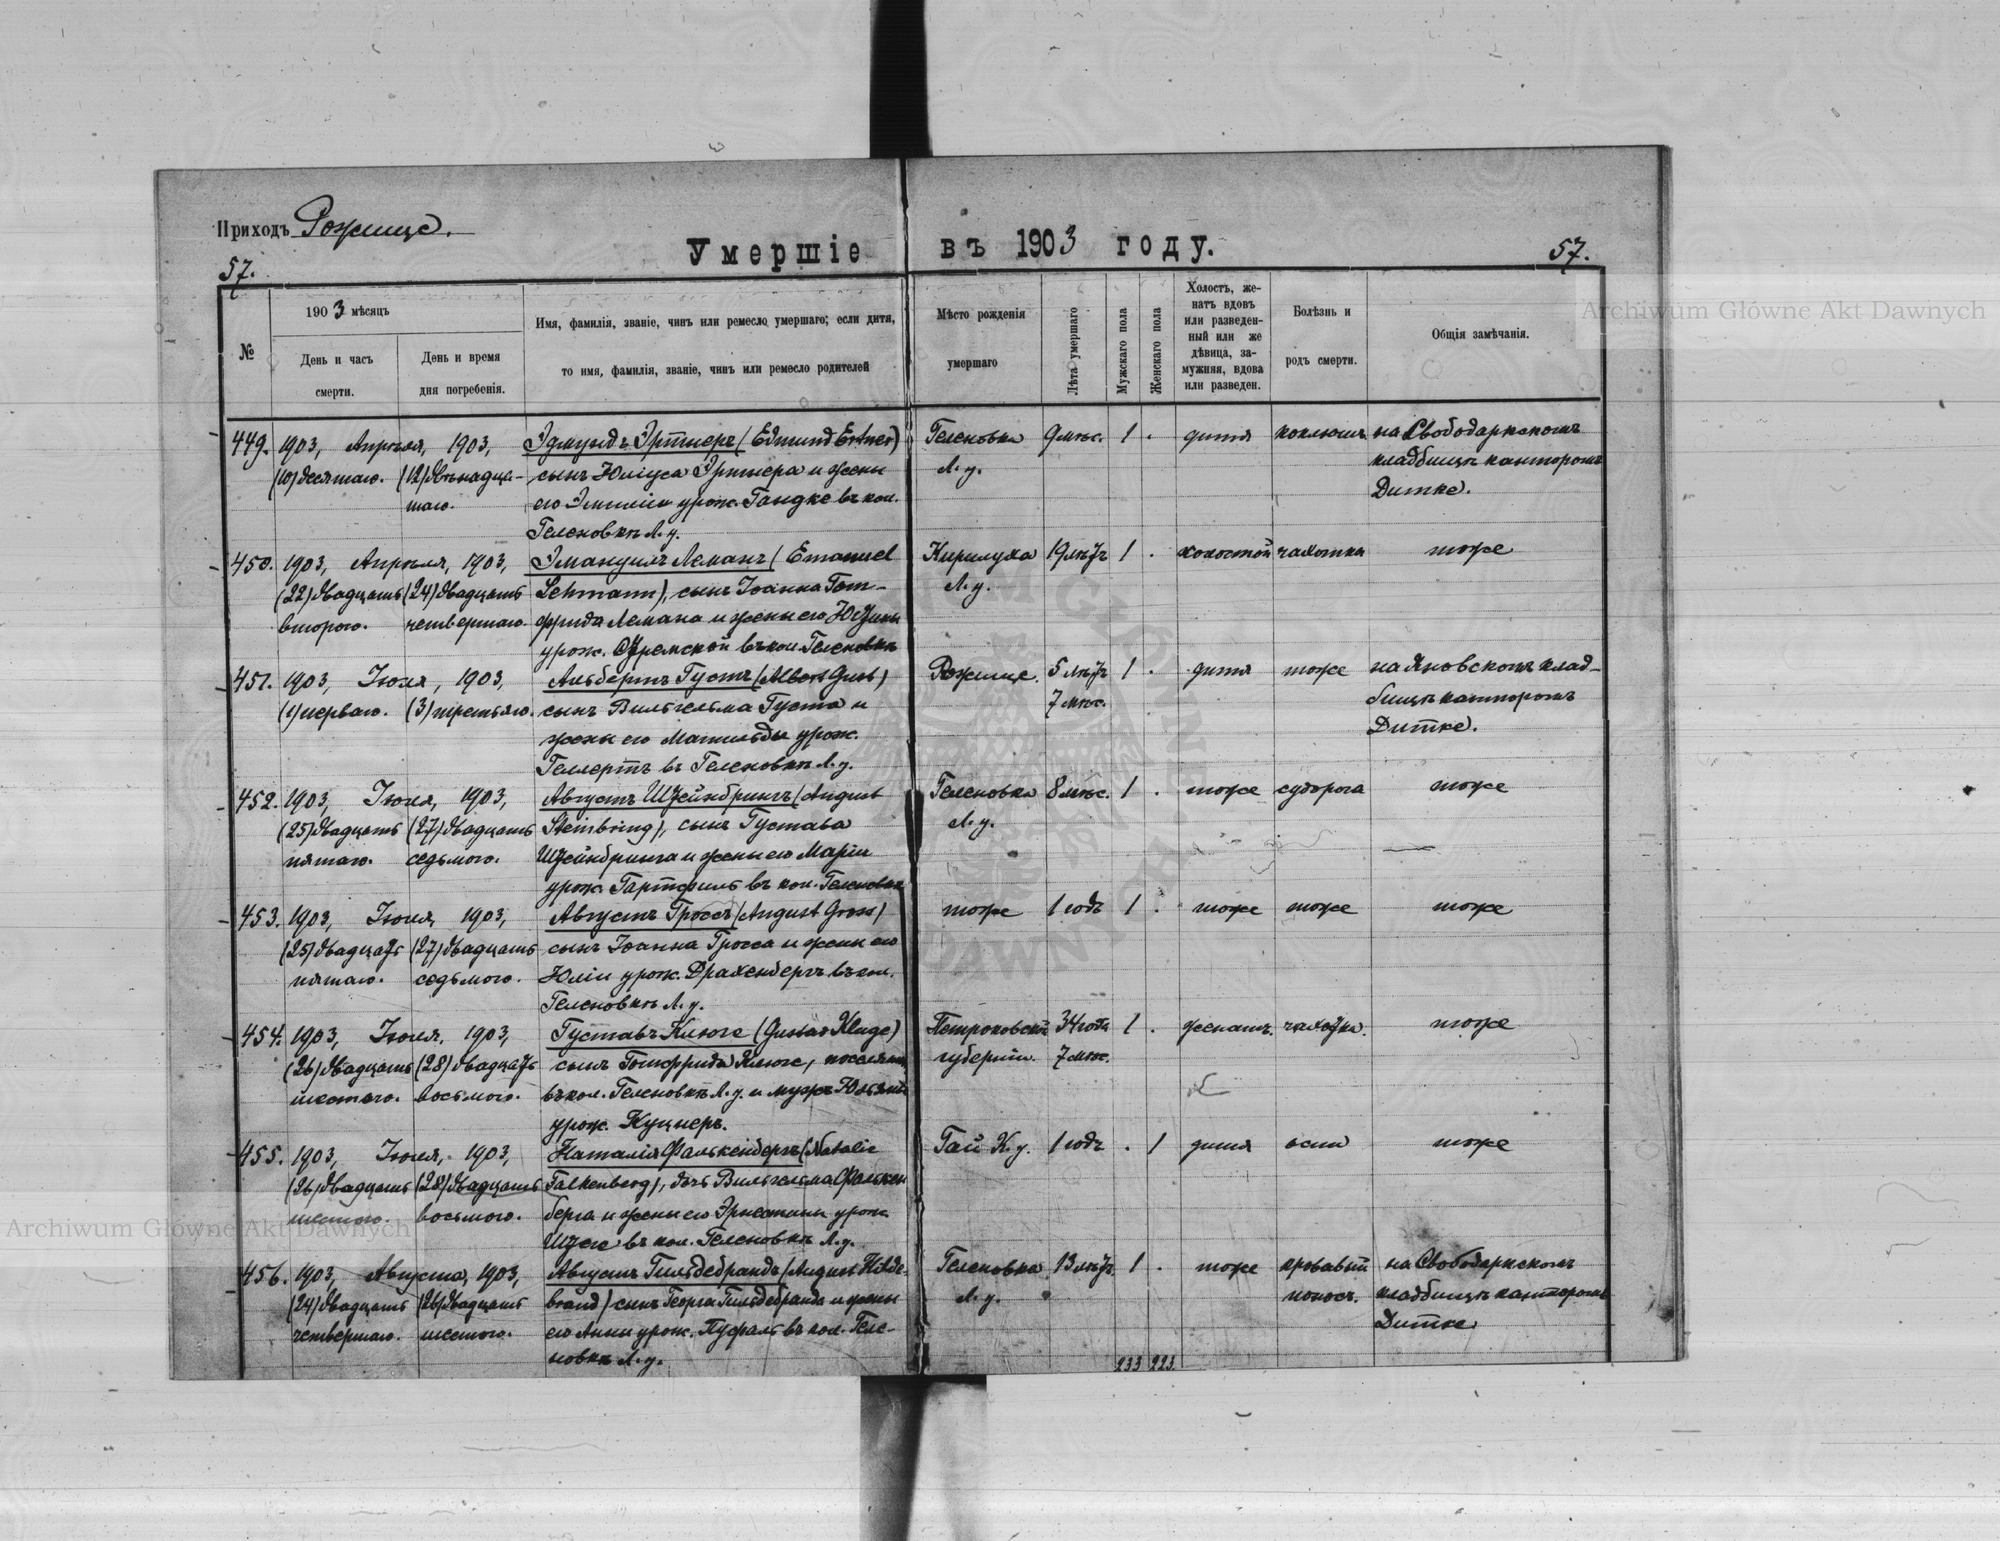 Приходъ Рожище.
Умершіе въ 1903 году.
57.
57.
№
1903 мѣсяцъ
День и часъ смерти.
День и время дня погребенія.
Имя, фамилія, званіе, чинъ или ремесло умершаго; если дитя,
то имя, фамилія, званіе, чинъ или ремесло родителей
Мѣсто рожденія
умершаго
Лѣта умершаго
Мужскаго пола
Женскаго пола
Холостъ, же-
натъ вдовъ
или разведен-
ный или же
дѣвица, за-
мужняя, вдова
или разведен.
Болѣзнь и
родъ смерти.
Общія замѣчанія.
Archiwum Główne Akt Dawnych
449. 1903, Апрѣля, 1903, Эдмундъ Эртнеръ (Edmund Ertner) Геленовка 9 мѣс. 1 . дитя коклюшъ на Свободарскомъ
(10) десятаго. (12) двѣнадца- сынъ Юліуса Эртнера и жены Л. у. кладбищѣ канторомъ
таго. его Эмиліи урож. Гандке въ кол. Дитке.
Геленовкѣ Л. у.
450. 1903, Апрѣля, 1903, Эмануилъ Леманъ (Emanuel Кирилуха 19 лѣтъ 1 . холостой чахотка тоже
(22) двадцать (24) двадцать Lehmann), сынъ Іоанна Гот- Л. у.
второго. четвертаго. фрида Лемана и жены его
урож. въ кол. Геленовкѣ
451. 1903, Іюля, 1903, Альбертъ Густъ (Albert Gust) Рожище. 5 лѣтъ 1 . дитя тоже на Яновскомъ клад-
(1) перваго. (3) третьяго. сынъ Вильгельма Густа и 7 мѣс. бищѣ канторомъ
жены его Матильды урож. Дитке.
Геллертъ въ Геленовкѣ Л. у.
452. 1903, Іюля, 1903, Августъ Штейнбрингъ (August Геленовка 8 мѣс. 1 . тоже судорога тоже
(25) двадцать (27) двадцать Steinbring), сынъ Густава Л. у.
пятаго. седьмого. Штейнбринга и жены его Маріи
урож. Гартфиль въ кол. Геленовкѣ
453. 1903, Іюля, 1903, Августъ Гроссъ (August Gross) тоже 1 годъ 1 . тоже тоже тоже
(25) двадцать (27) двадцать сынъ Іоанна Гросса и жены его
пятаго. седьмого. Юліи урож. Драхенбергъ въ кол.
Геленовкѣ Л. у.
454. 1903, Іюля, 1903, Густавъ Клюге (Gustav Kluge) Петроковской 34 года 1 . женатъ. чахотка. тоже
(26) двадцать (28) двадцать сынъ Готфрида Клюге, губерніи. 7 мѣс.
шестого. восьмого. въ кол. Геленовкѣ Л. у. и мужъ
урож. Куцнеръ.
455. 1903, Іюля, 1903, Наталія Фалькенбергъ (Natalie Гай К. у. 1 годъ . 1 дитя оспа тоже
(26) двадцать (28) двадцать Falkenberg), дочь Вильгельма Фалькен
шестого. восьмого. берга и жены его Эрнестины урож.
въ кол. Геленовкѣ Л. у.
456. 1903, Августа, 1903, Августъ Гильдебрандъ (August Hilde- Геленовка 13 лѣтъ 1 . тоже кровавый на Свободарскомъ
(24) двадцать (26) двадцать brand) сынъ Георга Гильдебранда и жены Л. у. поносъ. кладбищѣ канторомъ
четвертаго. шестого. его Анны урож. Пуфаль въ кол. Геле- Дитке.
новкѣ Л. у.
233 223.
Archiwum Główne Akt Dawnych